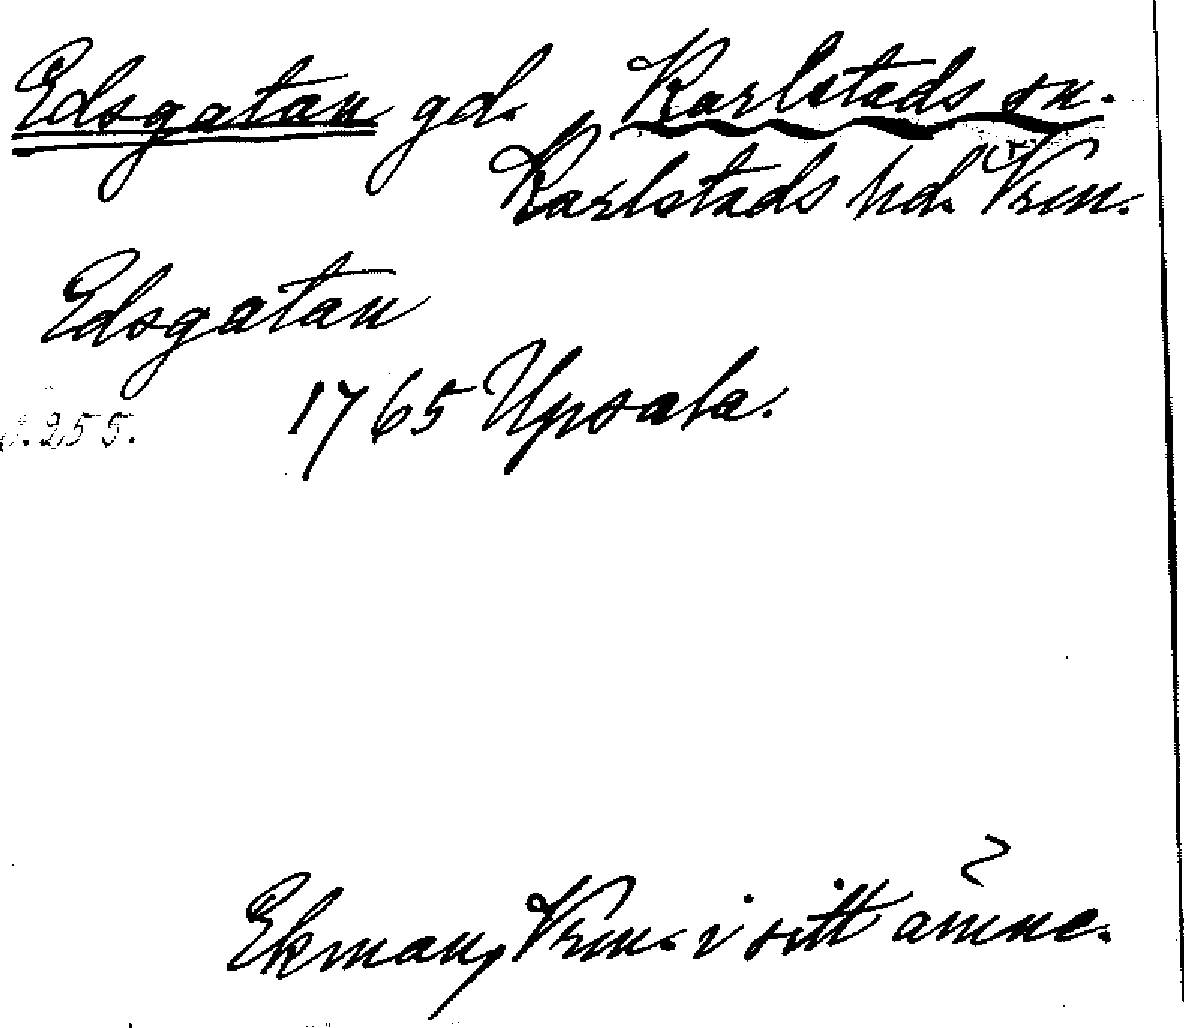 Edsgatan gd. Karlstads sn.
Karlstads hd. Vrm.
Edsgatan
1765 Upsala.
s. 255.
Ekman, Vrm. i sitt ämne.